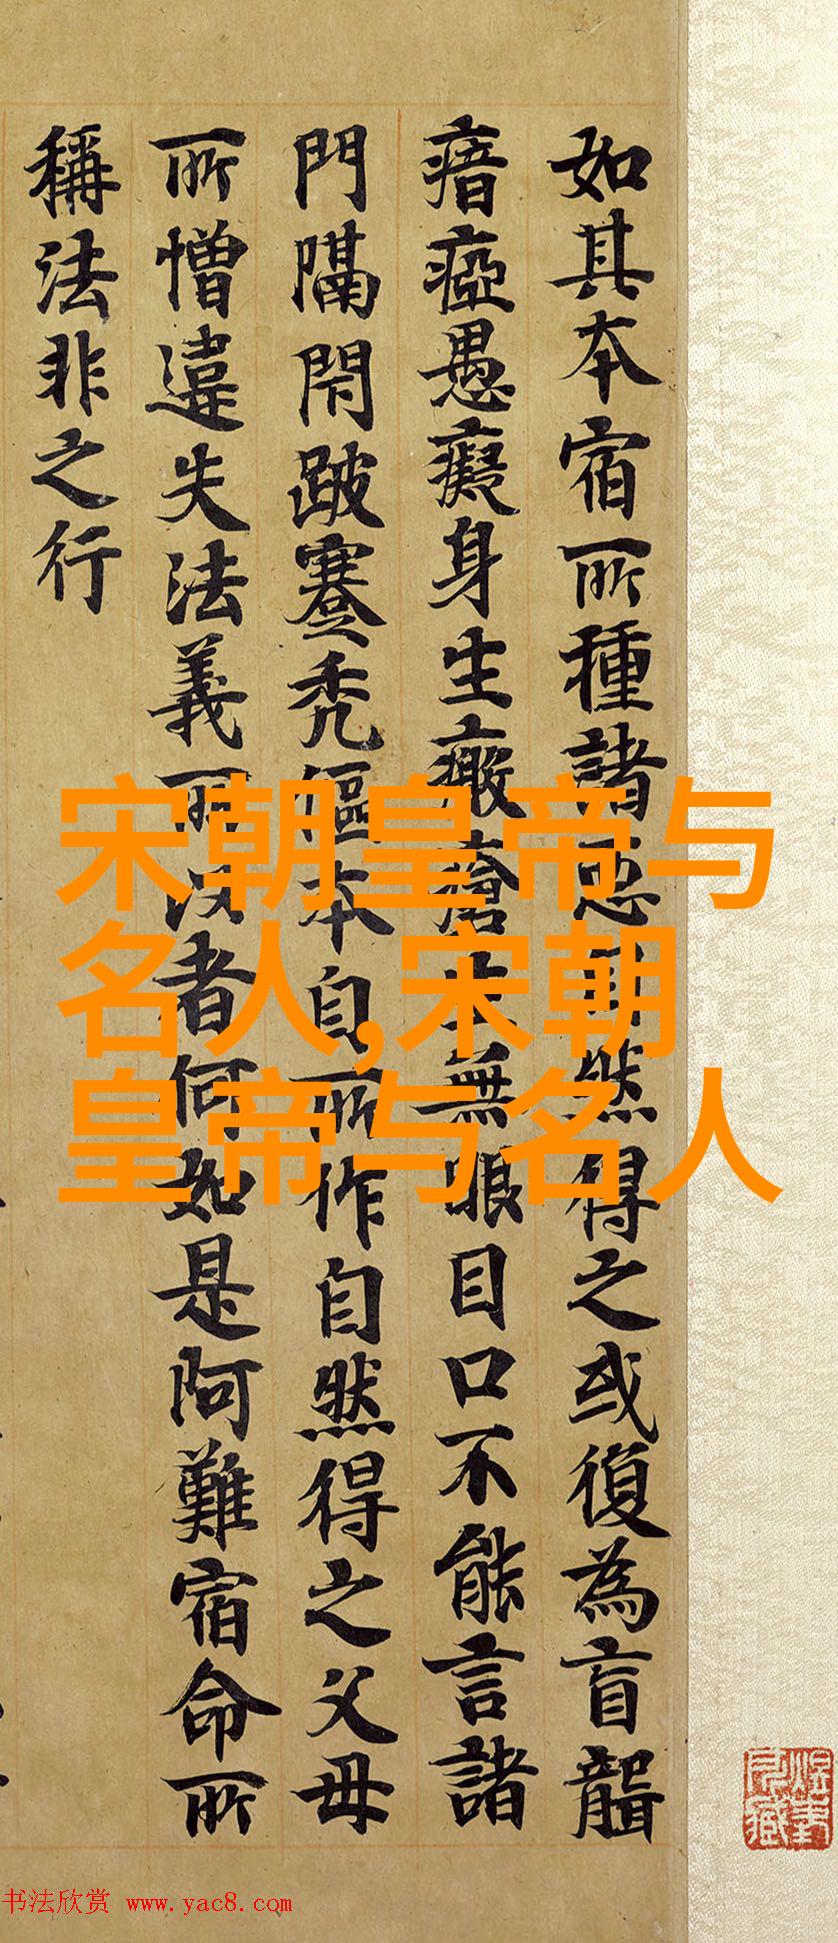 如其本宿所種諸惡自然得之或復為盲聾
瘖瘂愚癡身生瘢瘡生無眼目口不能言諸
門隔閇跛蹇秃傴本自所作自然得之父母
所憎違失法義所以者何如是阿難宿命所
稱法非之行
宋朝皇帝与
名人,宋朝
皇帝与名人
书法欣赏 www.yac8.com